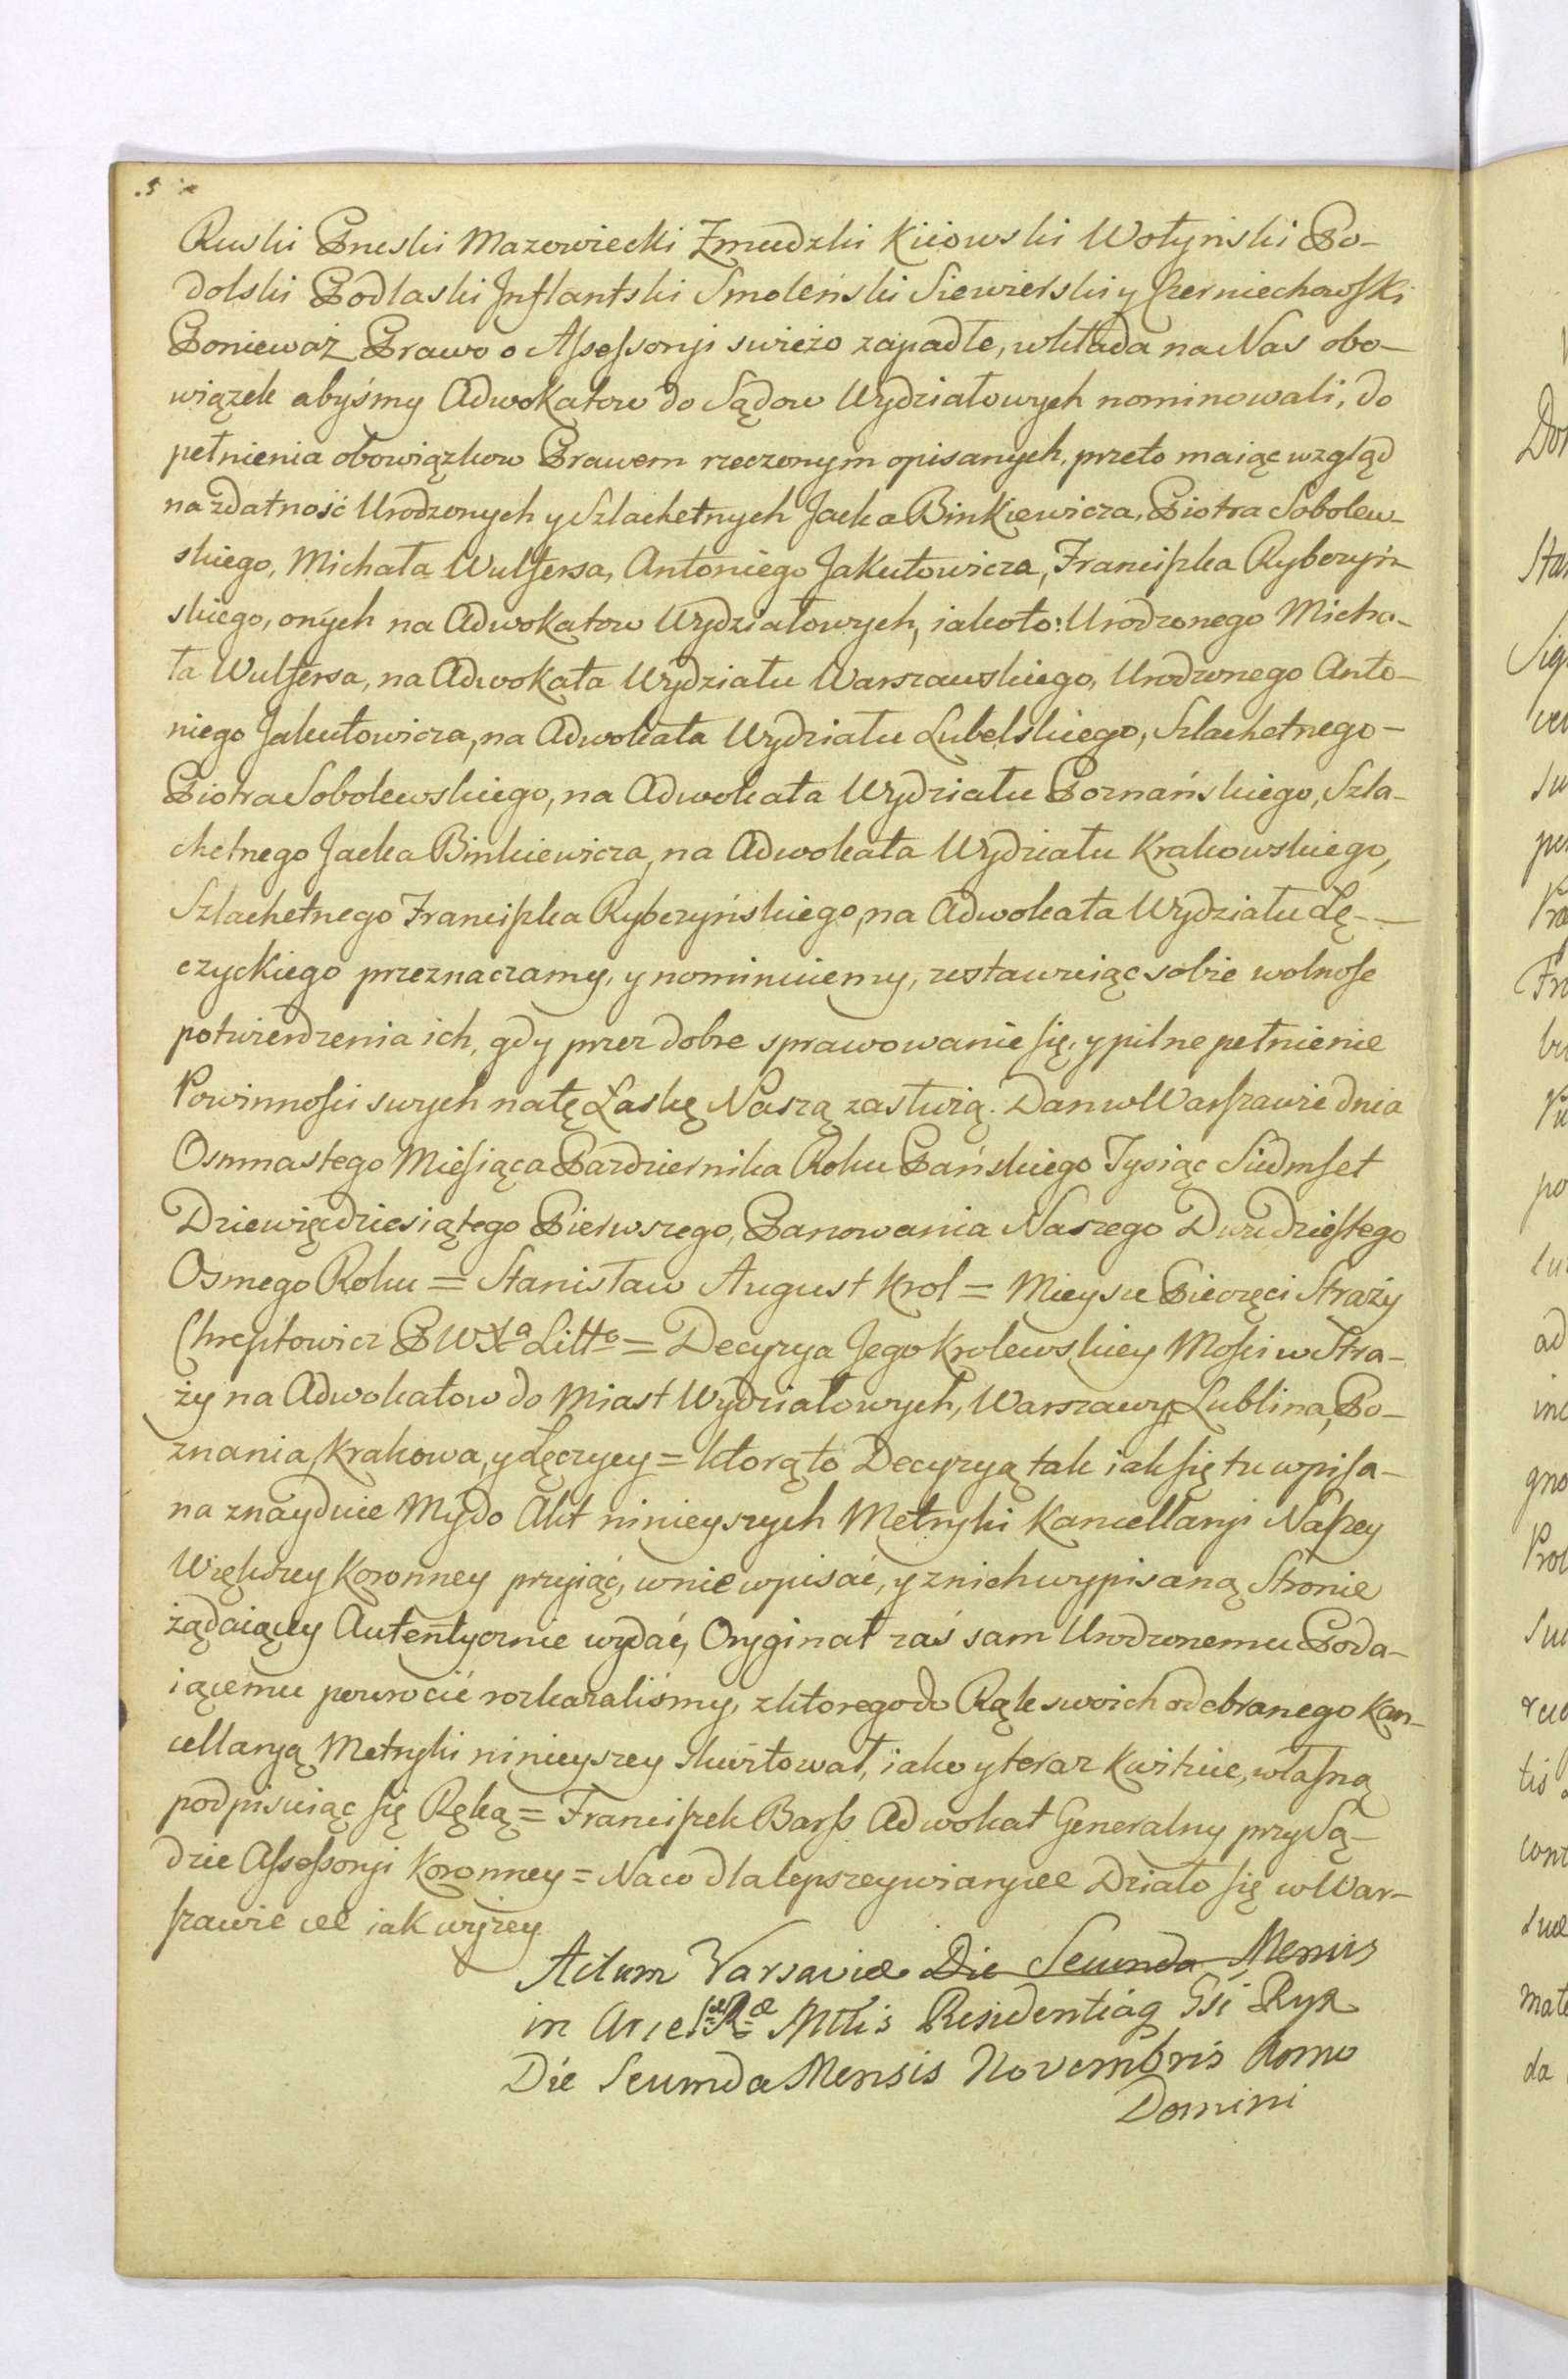 5
Ruski Pruski Mazowiecki Zmudzki Kiiowski Wołyński Po-
dolski Podlaski Inflantski Smoleński Siewierski y Czerniechowski
Ponieważ Prawo o Assessoryi swieżo zapadłe, wkłada na Nas obo-
wiązek abyśmy Adwokatow do Sądow Wydziałowych nominowali, do
pełnienia obowiązkow Prawem rzeczonym opisanych, przeto maiąc wzgląd
na zdatność Urodzonych y Szlachetnych Jacka Binkiewicza, Piotra Sobolew-
skiego, Michała Wulfersa, Antoniego Jakutowicza, Franciszka Rybczyń-
skiego, onych na Adwokatow Wydziałowych, iakoto: Urodzonego Micha-
ła Wulfersa, na Adwokata Wydziału Warszawskiego, Urodzonego Anto-
niego Jakutowicza, na Adwokata Wydziału Lubelskiego, Szlachetnego-
Piotra Sobolewskiego, na Adwokata Wydziału Poznańskiego, Szla-
chetnego Jacka Binkiewicza, na Adwokata Wydziału Krakowskiego,
Szlachetnego Franciszka Rybczyńskiego, na Adwokata Wydziału Łę-
czyckiego przeznaczamy, y nominuiemy, zostawuiąc sobie wolnosc
potwierdzenia ich, gdy przez dobre sprawowanie się, y pilne pełnienie
Powinności swych na tę Łaskę Naszą zasłużą. Dan w Warszawie dnia
Osmnastego Miesiąca Pazdziernika Roku Pańskiego Tysiąc Siedmset
Dziewięćdziesiątego Pierwszego, Panowania Naszego Dwudziestego
Osmego Roku = Stanisław August Krol = Mieysce Pieczęci Straży
Chreptowicz P W X.a Litto = Decyzya Jego Krolewskiey Mości w Stra-
ży na Adwokatow do Miast Wydziałowych, Warszawy, Lublina, Po-
znania, Krakowa, y Łęczycy = ktorąto Decyzyą tak iak się tu wpisa-
na znayduie My do Akt ninieyszych Metryki Kancellaryi Naszey
Większey Koronney przyiąć, w nie wpisać, y z nich wypisaną Stronie
żądaiącey Autentycznie wydać, Oryginał zaś sam Urodzonemu Poda-
iącemu powrocić rozkazaliśmy, z ktorego do Rąk swoich odebranego Kan-
cellaryą Metryki ninieyszey skwitował, iako y teraz kwituie, własną
podpisuiąc się Ręką = Franciszek Barss Adwokat Generalny przy Są-
dzie Assessoryi Koronney = Na co dla lepszey wiary ett Działo się w War-
szawie ett iak wyżey.
Actum Varsaviæ Die Secunda Mensis
in Arce S.R.æ Mttis Residentiaq
Die Secunda Mensis Novembris Anno
Domini